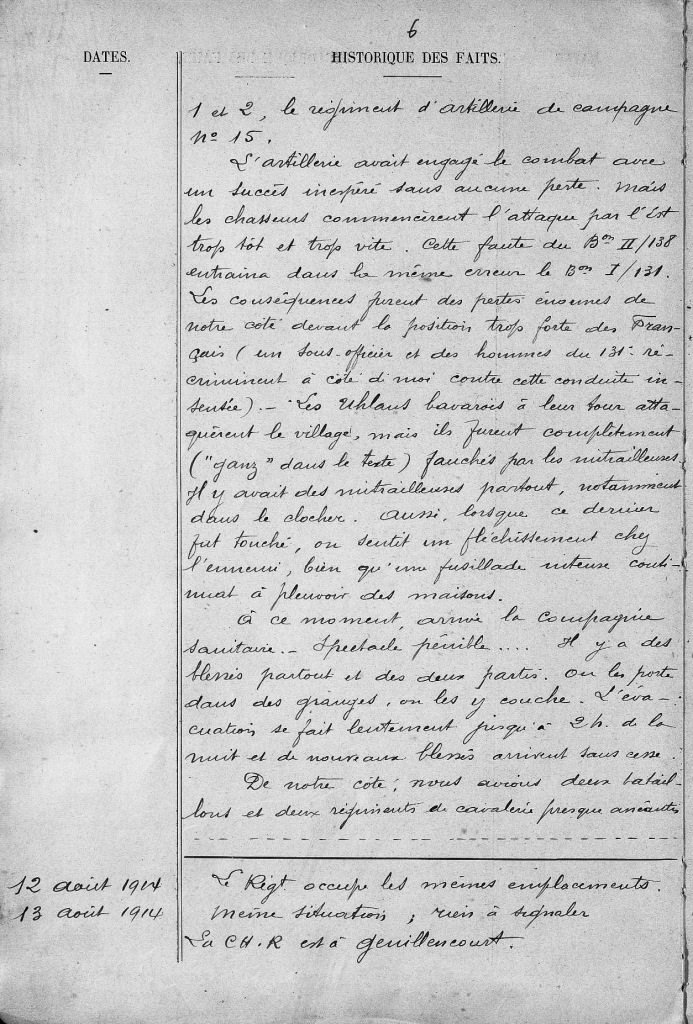 6
DATES.
HISTORIQUE DES FAITS.
1 et 2, le régiment d'artillerie de campagne
No 15.
L'artillerie avait engagé le combat avec
un succès inespéré sans aucune perte. Mais
les chasseurs commencèrent l'attaque par l'Est
trop tôt et trop vite. Cette faute du Bon II/138
entraina dans la même erreur le Bon I/131.
Les conséquences furent des pertes énormes de
notre côté devant la position trop forte des Fran-
çais (un sous-officier et des hommes du 131e ré-
criminent à côté d moi contre cette conduite in-
sensée). - Les Uhlans bavarois à leur tour atta-
quèrent le village, mais ils furent complètement
("ganz" dans le texte) fauchés par les mitrailleuses.
Il y avait des mitrailleuses partout, notamment
dans le clocher. Aussi, lorsque ce dernier
fut touché, on sentit un fléchissement chez
l'ennemi, bien qu'une fusillade intense conti-
nuat à pleuvoir des maisons.
À ce moment, arrive la compagnie
sanitaire. - Spectacle pénible.... Il y a des
blessés partout et des deux partis. On les porte
dans des granges, on les y couche. L'éva-
cuation se fait lentement jusqu'à 2h. de la
nuit et de nouveaux blessés arrivent sans cesse.
De notre côté, nous avions deux batail-
lons et deux régiments de cavalerie presque anéantis
12 août 1914 Le Régt. occupe les mêmes emplacements.
13 août 1914 Même situation ; rien à signaler
La CH.R est à Genillencourt.